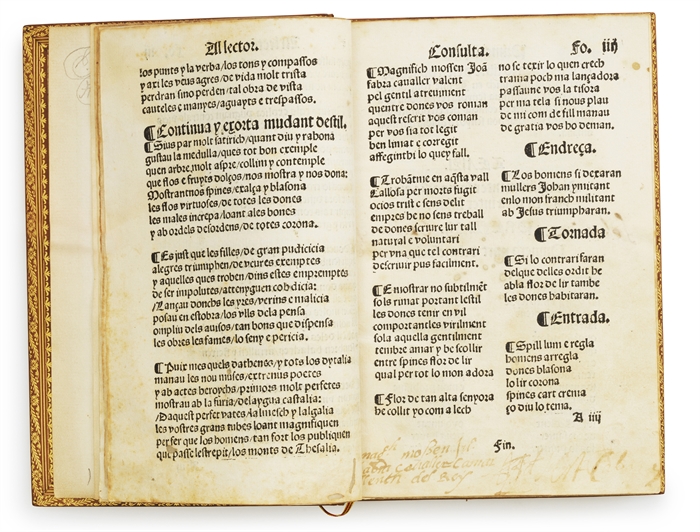 Al lector.
los punts y la verba/los tons y compassos
y axi les veus agres/de vida molt trista
perdran sino perden/tal obra de vista
cauteles e manyes/aguayts e trespassos.
¶Continua y exorta mudant destil.
¶Sius par molt satirich/quant diu y rahona
gustau la medulla/ques tot bon exemple
quen arbre molt aspre/collim y contemple
que flos e fruytes dolços/nos mostra y nos dona:
Mostrantnos spines/exalça y blasona
les flos virtuoses/de totes les dones
les males increpa/loant ales bones
y ab ordels desordens/de totes corona.
¶Es just que les filles/de gran pudicicia
alegres triumphen/de veures exemptes
y aquelles que troben/dins estes empremptes
de ser impolutes/attenyguen cobdicia:
Lançau donchs les vres/verins e malicia
posau en estobra/los vlls dela pensa
ompliu dels auisos/tan bons que dispensa
les obres les fames/lo seny e pericia.
¶Puix mes quels dathenes/y tots los dytalia
manau les nou muses/extrenus poetes
y ab actes heroychs/primors molt perfetes
mostrau ab la furia/delaygua castalia:
Daquest perfet vates/la lluesch y lalgalia
les vostres grans tubes loant magnifiquen
per fer que los homens/tan fort los publiquen
qui passe lestrepit/los monts de Thesalia.
Consulta. Fo. iiij
¶Magnifich mossen Joã
fabra caualler valent
pel gentil atreuiment
quentre dones vos roman
aquest rescrit vos coman
per vos sia tot legit
ben limat e corregit
affeginthi lo quey fall.
¶Trobãtme en aq̃sta vall
Callosa per morts fugit
ocios trist e sens delit
empres he no sens treball
de dones scriure lur tall
natural e voluntari
per vna que tel contrari
descriuir pus facilment.
¶E mostrar no subtilmẽt
sols rimat portant lestil
les dones tenir en vil
comportantles virilment
sola aquella gentilment
tembre amar y be scollir
entre spines flor de lir
qual per tot lo mon adora
¶Flor de tan alta senyora
he collit yo com a lech
no se texir lo quen crech
trama poch ma lançadora
passaune vos la tisora
per ma tela si nous plau
de mi com de fill manau
de gratia vos ho deman.
¶Endreça.
¶Los homens si dexaran
mullers Johan ymitant
enlo mon franch militant
ab Jesus triumpharan.
¶Tornada
¶Si lo contrari faran
delque delles ordit he
ab la flor de lir tambe
les dones habitaran.
¶Entrada.
¶Spill lum e regla
homens arregla
dones blasona
lo lir corona
spines cart crema
ço diu lo tema.
A iiij
Fin.
mossen